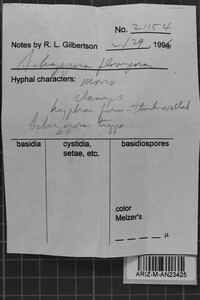 No. 21154
Notes by R. L. Gilbertson 2/29, 1996
Schizopora flavipora
Hyphal characters: mono
clamps
hyphae firm-thick walled
Schizopora type
basidia
cystidia,
setae, etc.
basidiospores
color
Melzer's
µ
ARIZ-M-AN23425